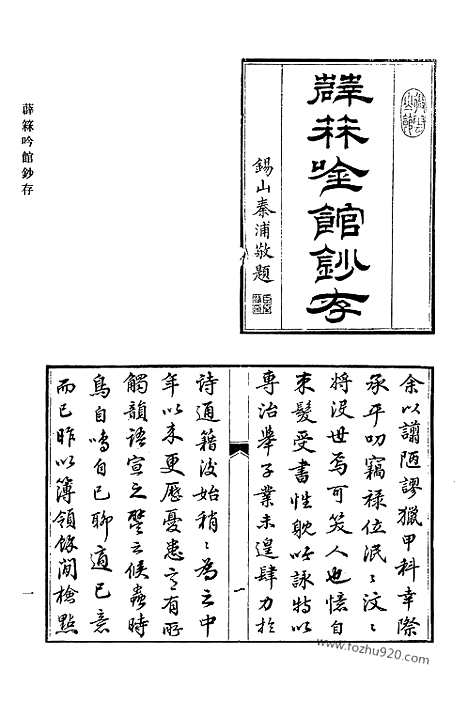 薜箖吟館鈔存
錫山秦浦敬題
薜箖吟館鈔存
余以謭陋謬獵甲科幸際
承平叨竊祿位泯泯汶汶
將沒世焉可笑人也憶自
束髮受書性耽吟詠特以
專治舉子業未遑肆力於
詩通籍後始稍稍為之中
年以來更歷憂患意有所
觸韻語宣之譬之候蟲時
鳥自鳴自已聊適己意
而已昨以簿領餘閒檢點
一
一
www.fozhu920.com